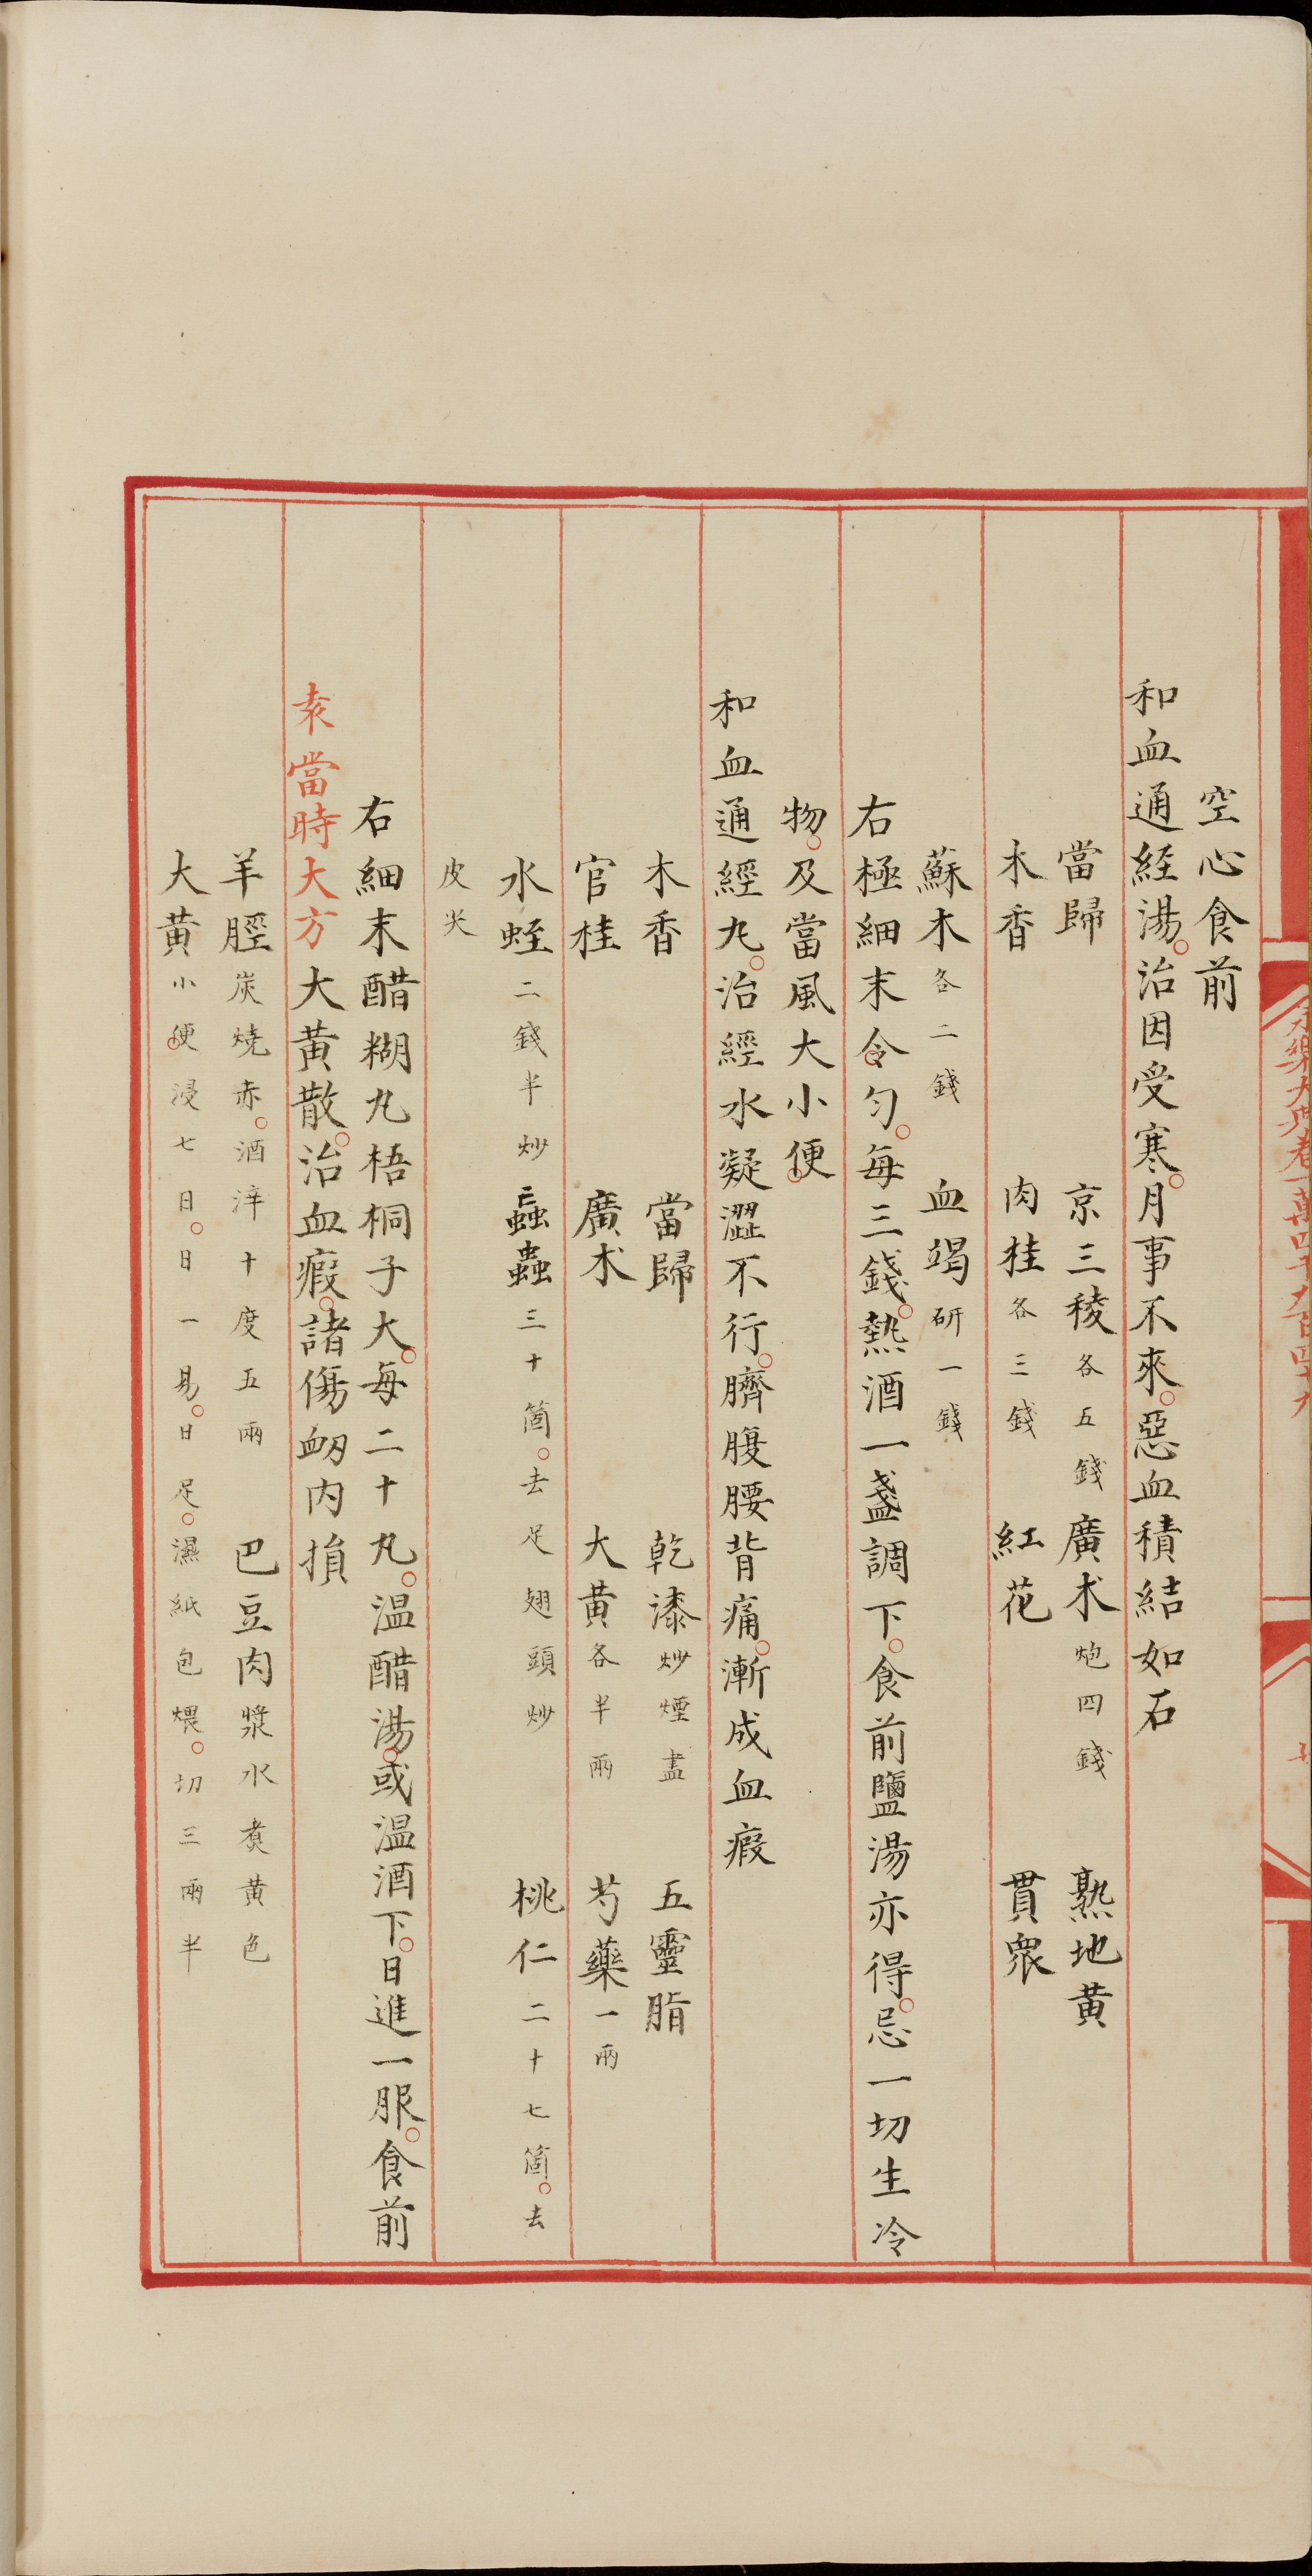 空心食前
和血通経湯。治因受寒。月事不來。惡血積結如石
當歸　京三稜各五錢　廣朮炮四錢　熟地黃
木香　肉桂各三錢　紅花　貫衆
蘇木各二錢　血竭研一錢
右極細末令匀。每三錢。熱酒一盞調下。食前鹽湯亦得。忌一切生冷
物。及當風大小便。
和血通經丸。治經水凝澀不行。臍腹腰背痛。漸成血瘕
木香　當歸　乾漆炒煙盡　五靈脂
官桂　廣朮　大黃各半兩　芍藥一兩
水蛭二錢半炒　蟲三十箇。去足翅頭炒　桃仁二十七箇。去
皮尖
右細末醋糊丸梧桐子大。每二十丸。温醋湯。或温酒下。日進一服。食前
袁當時大方大黃散。治血瘕。諸傷衂内損
羊脛炭燒赤。酒淬十度五兩　巴豆肉漿水煮黃色
大黃小便。浸七日。日一易。日足。濕紙包煨。切三兩半
永樂大典卷一萬四千九百四十九